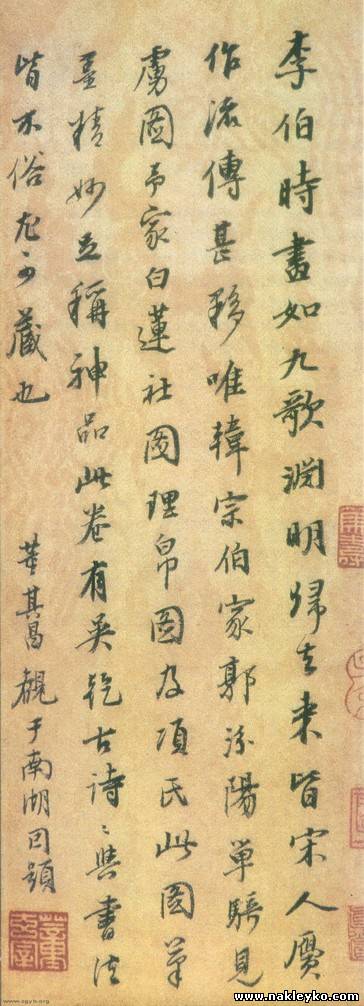 李伯時畫如九歌淵明歸去來皆宋人贗
作流傳甚夥唯韓宗伯家郭汾陽單騎見
虜圖予家白蓮社圖理帛圖及項氏此圖筆
墨精妙稱神品此卷有吳古詩〻與書法
皆不俗尤可藏也
董其昌觀于南湖因題
www.nakleyko.com